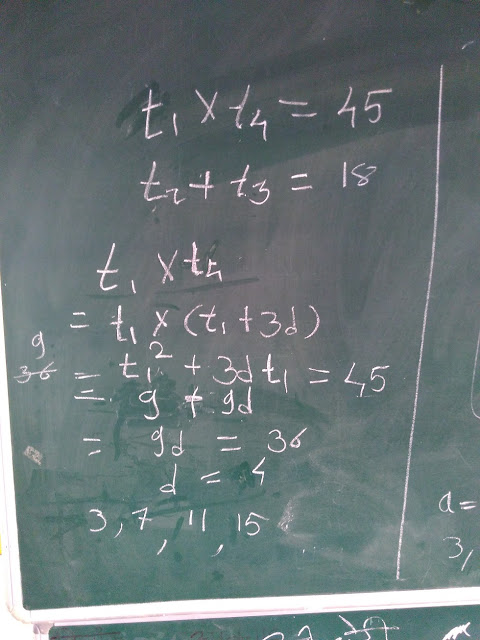 t₁ × t₄ = 45
t₂ + t₃ = 18
t₁ × t₄
= t₁ × (t₁ + 3d)
9
36 = t₁² + 3dt₁ = 45
= 9 + 9d
= 9d = 36
d = 4
3, 7, 11, 15
a =
3,